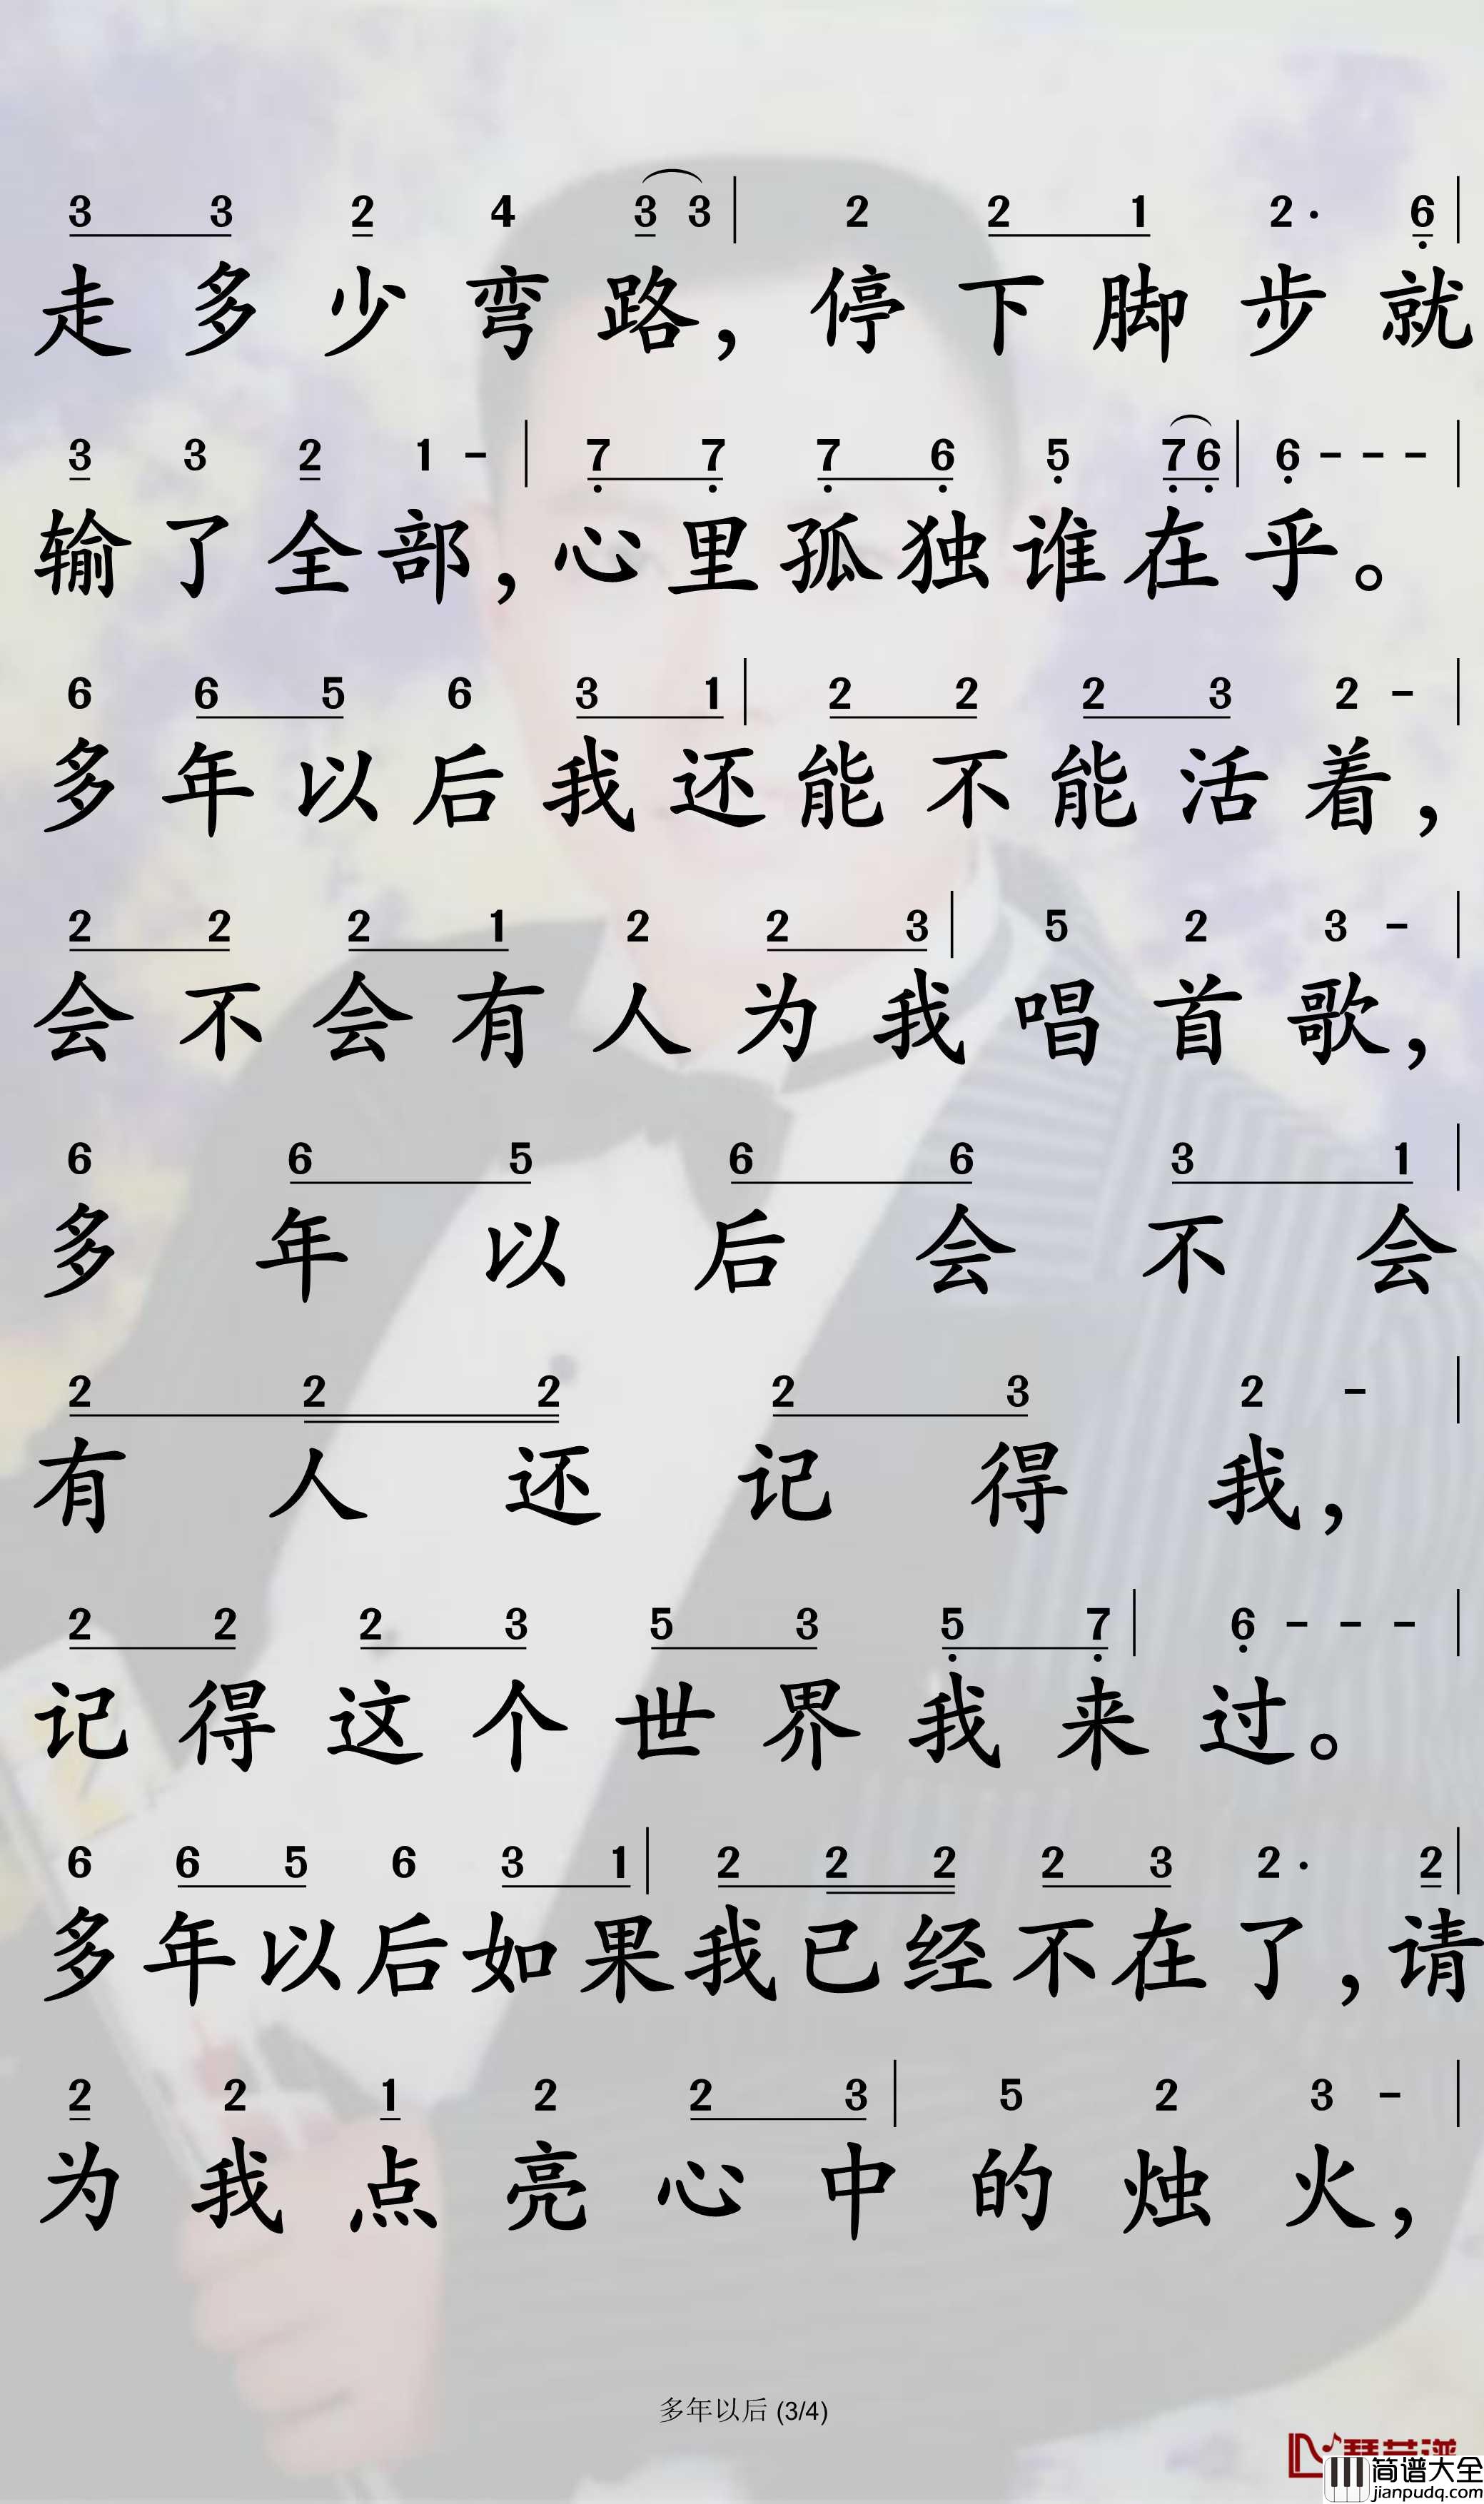 3 3 2 4 3 3 | 2 2 1 2· 6 |
走多少弯路，停下脚步就
3 3 2 1 - | 7 7 7 6 5 7 6 | 6 - - - |
输了全部，心里孤独谁在乎。
6 6 5 6 3 1 | 2 2 2 3 2 - |
多年以后我还能不能活着，
2 2 2 1 2 2 3 | 5 2 3 - |
会不会有人为我唱首歌，
6 6 5 6 6 3 1 |
多年以后会不会
2 2 2 2 3 2 - |
有人还记得我，
2 2 2 3 5 3 5 7 | 6 - - - |
记得这个世界我来过。
6 6 5 6 3 1 | 2 2 2 2 3 2· 2 |
多年以后如果我已经不在了，请
2 2 1 2 2 3 | 5 2 3 - |
为我点亮心中的烛火，
多年以后 (3/4)
简谱大全
jianpudq.com